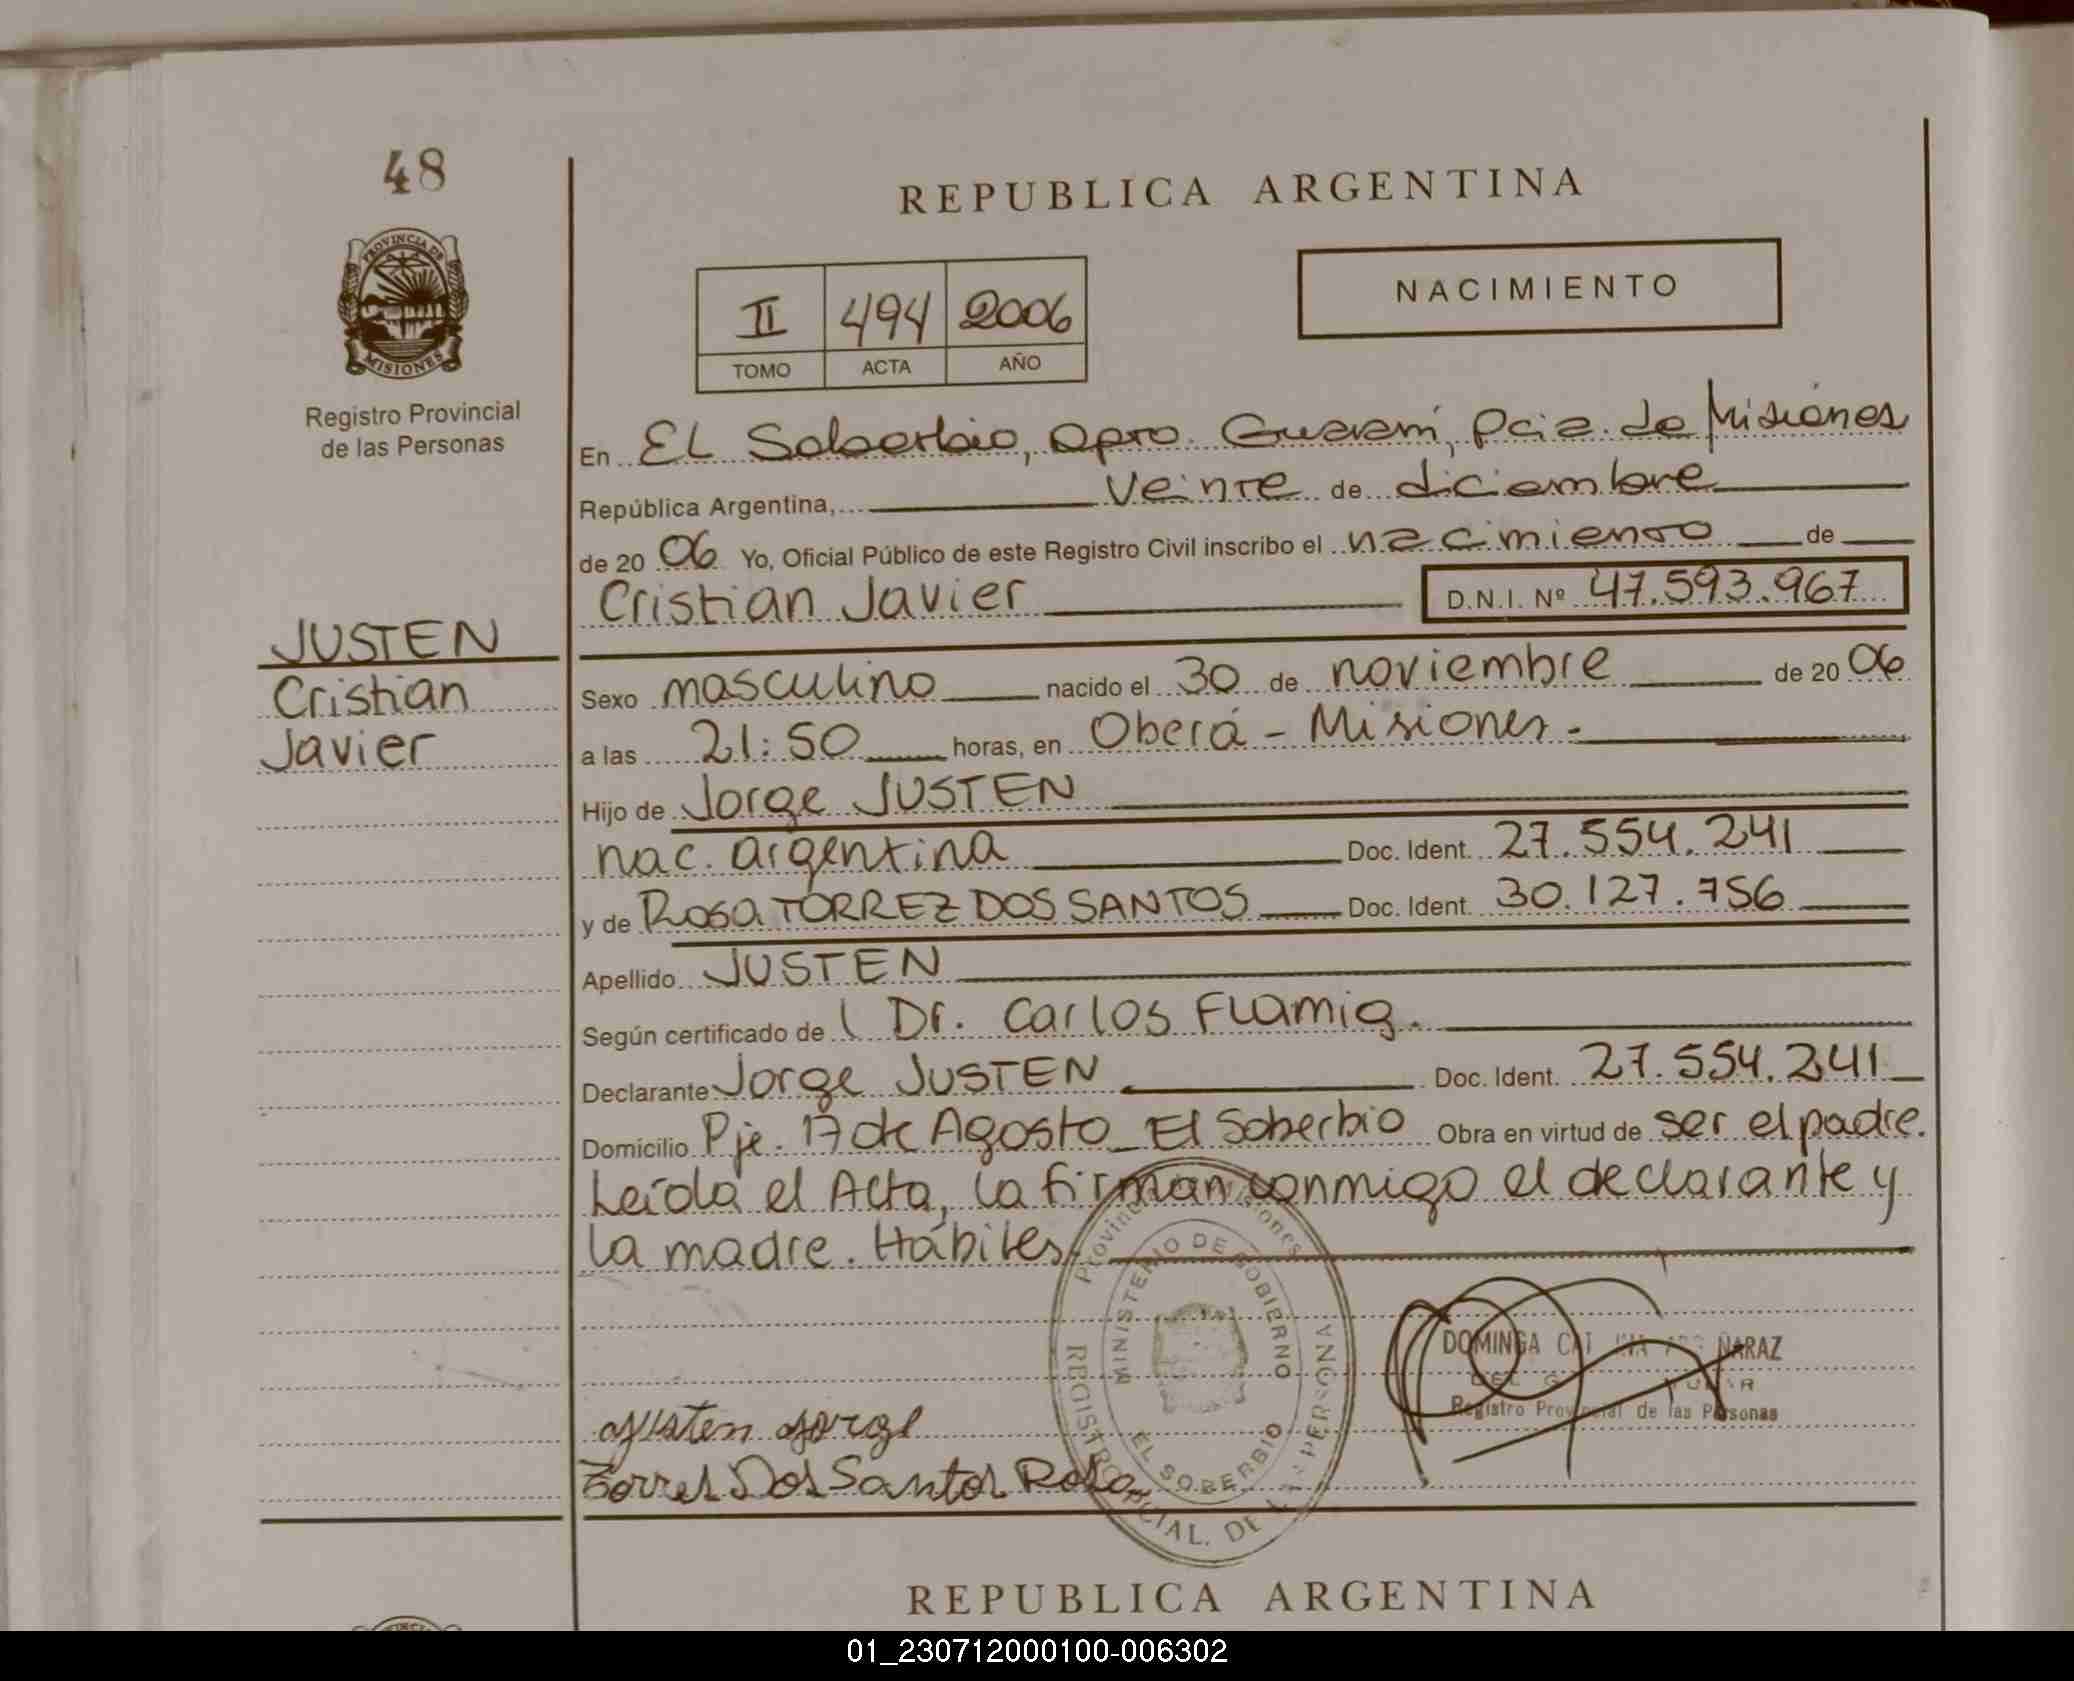 48
PROVINCIA DE
MISIONES
Registro Provincial
de las Personas
REPUBLICA ARGENTINA
II 494 2006
TOMO ACTA AÑO
NACIMIENTO
En EL Soberbio, Dpto. Guaraní, Pcia. de Misiones
República Argentina, veinte de diciembre
de 20 06 Yo, Oficial Público de este Registro Civil inscribo el nacimiento de
Cristian Javier D.N.I. Nº 47.593.967
JUSTEN
Cristian
Javier
Sexo masculino nacido el 30 de noviembre de 20 06
a las 21:50 horas, en Oberá - Misiones.-
Hijo de Jorge JUSTEN
nac. argentina Doc. Ident. 27.554.241
y de Rosa TORREZ DOS SANTOS Doc. Ident. 30.127.756
Apellido JUSTEN
Según certificado de Dr. Carlos Flamig.
Declarante Jorge JUSTEN Doc. Ident. 27.554.241
Domicilio Pje. 17 de Agosto - El Soberbio Obra en virtud de ser el padre.
Leída el Acta, la firman conmigo el declarante y
la madre. Hábiles.
Provincia Misiones
MINISTERIO DE GOBIERNO
EL SOBERBIO
REGISTRO PROVINCIAL DE LAS PERSONAS
DOMINGA
Registro Provincial de las Personas
Justen Jorge
Torres Dos Santos Rosa
REPUBLICA ARGENTINA
01_230712000100-006302